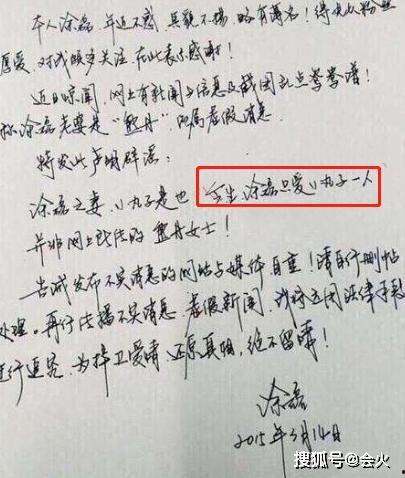 本人涂磊,年近不惑,其貌不扬,略有薄名!得众位粉丝
厚爱,对我颇多关注,在此表示感谢!
近日惊闻,网上有新闻与信息及截图乱点鸳鸯谱!
称涂磊老婆是“熊丹”,纯属虚假消息。
特发此声明辟谣:
涂磊之妻,小丸子是也,今生,涂磊只爱小丸子一人
并非网上所传的熊丹女士!
告诫发布不实消息的网站与媒体自重!请自行删帖
处理。再行传播不实消息、虚假新闻,我将运用法律手段
进行追究,为捍卫爱情,还原真相,绝不留情!
涂磊
2015年3月14日
搜狐号@会火